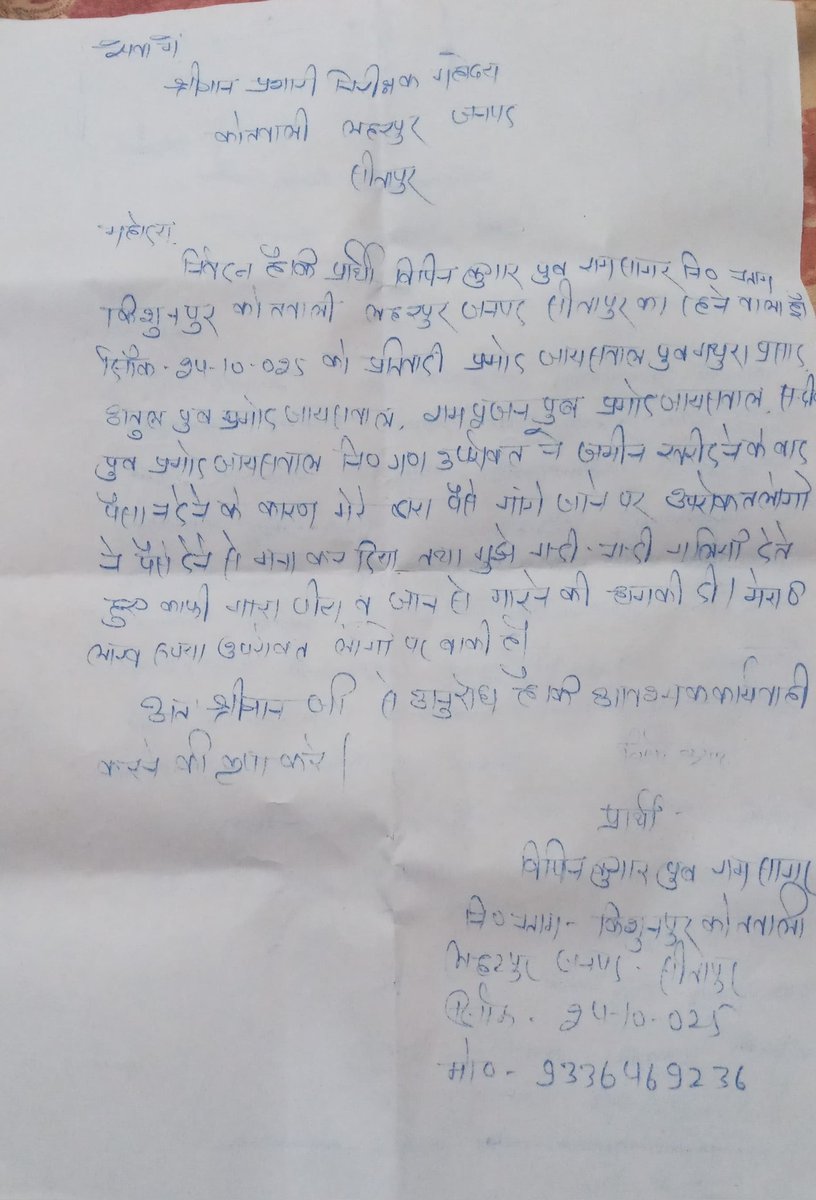 सेवा में
श्रीमान प्रभारी निरीक्षक महोदय
कोतवाली लहरपुर जनपद
सीतापुर
महोदय,
निवेदन है कि प्रार्थी विपिन कुमार पुत्र राम सागर नि० ग्राम
किशुनपुर कोतवाली लहरपुर जनपद सीतापुर का रहने वाला है।
दिनाँक - 24-10-025 को प्रतिवादी प्रमोद जायसवाल पुत्र मथुरा प्रसाद,
पुत्र प्रमोद जायसवाल, राम पूजन पुत्र प्रमोद जायसवाल,
पुत्र प्रमोद जायसवाल नि० गण उपरोक्त ने जमीन खरीदने के बाद
पैसा न देने के कारण मेरे द्वारा पैसे मांगे जाने पर उपरोक्त लोगो
ने पैसे देने से मना कर दिया तथा मुझे गन्दी-गन्दी गालियाँ देते
हुए काफी मारा पीटा व जान से मारने की धमकी दी। मेरा 8
लाख रुपया उपरोक्त लोगो पर बाकी है।
अतः श्रीमान जी से अनुरोध है कि आवश्यक कार्यवाही
करने की कृपा करे।
प्रार्थी -
विपिन कुमार पुत्र राम सागर
नि० ग्राम - किशुनपुर कोतवाली
लहरपुर जनपद - सीतापुर
दिनाँक - 24-10-025
मो० - 9336469236